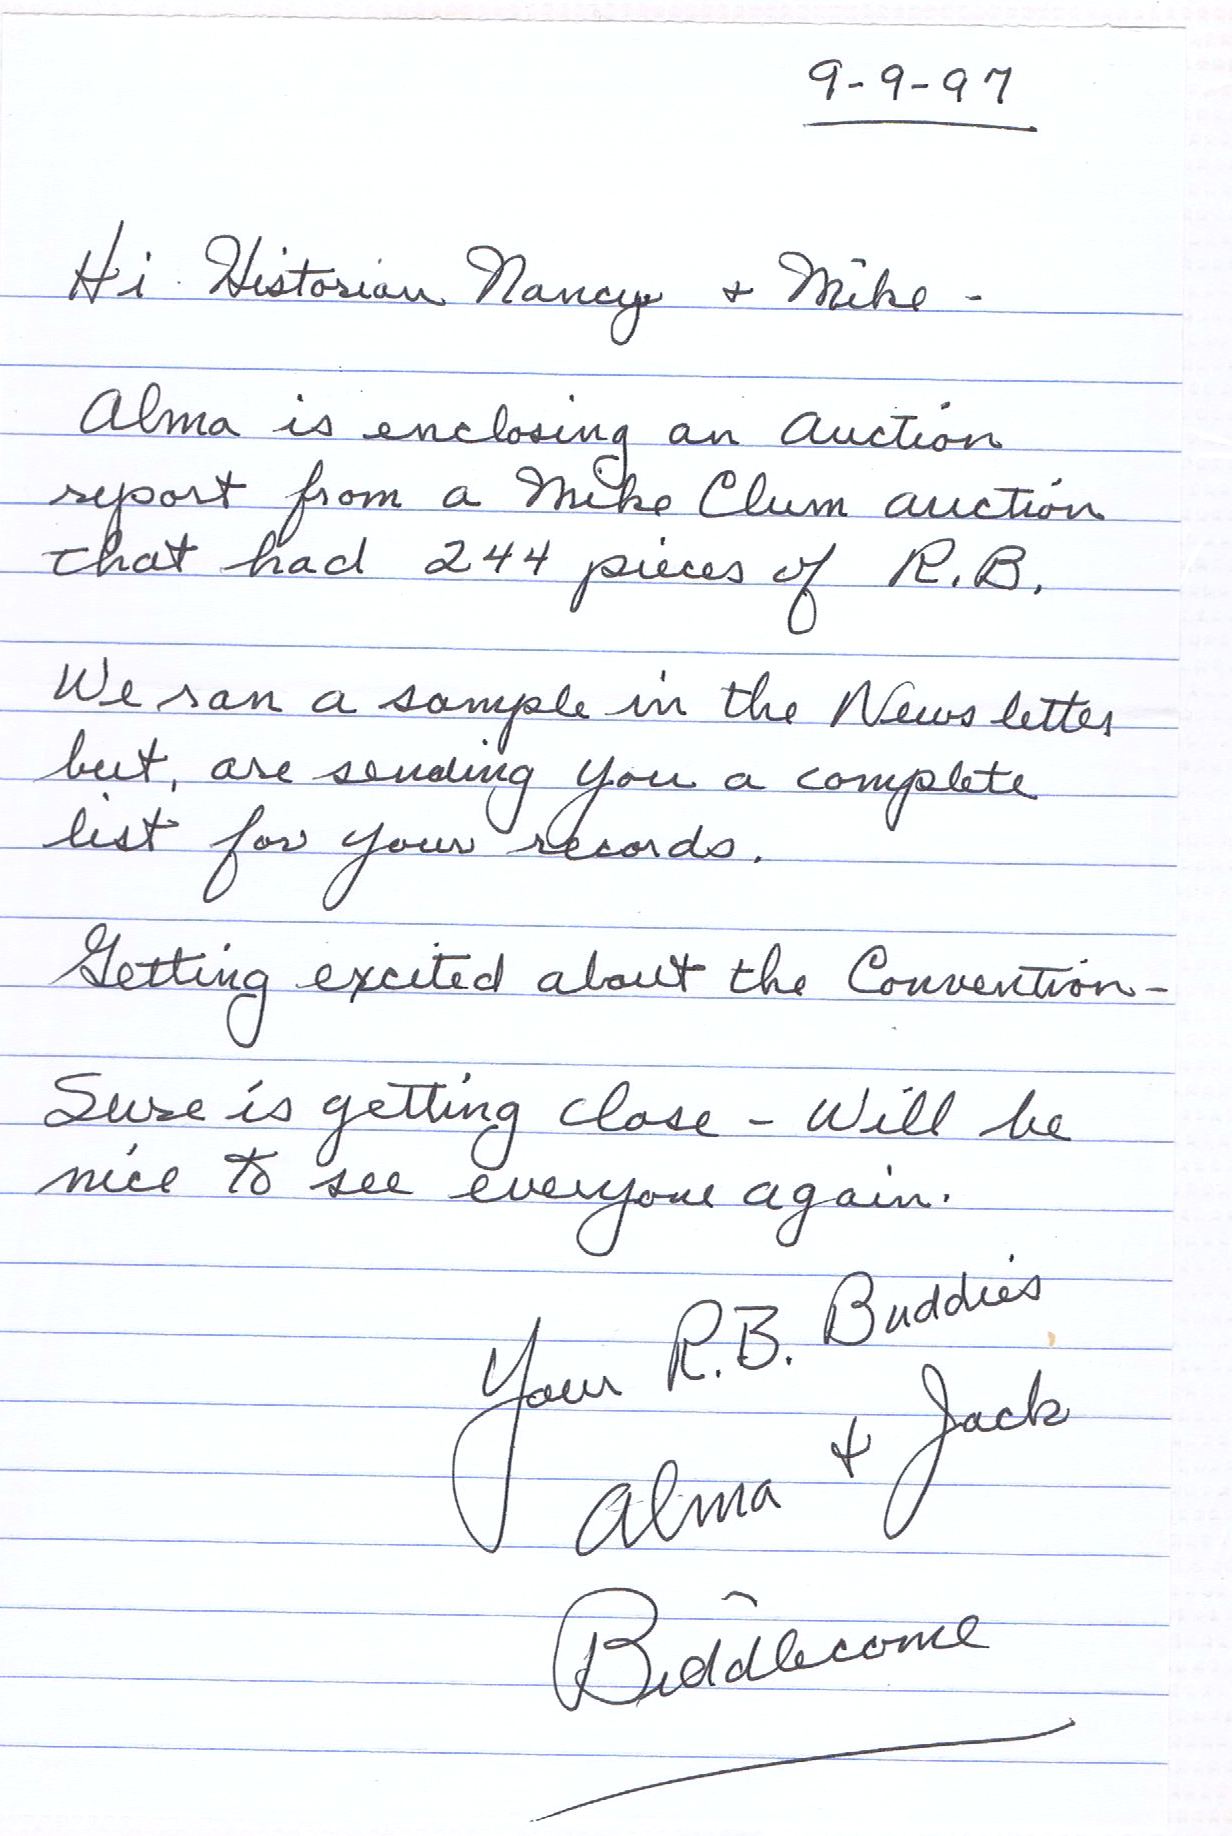 9-9-97
Hi Historian Nancy + Mike -
Alma is enclosing an auction
report from a Mike Clum auction
that had 244 pieces of R.B.
We ran a sample in the Newsletter
but, are sending you a complete
list for your records.
Getting excited about the Convention -
Sure is getting close - Will be
nice to see everyone again.
Your R.B. Buddies
Alma + Jack
Biddlecome